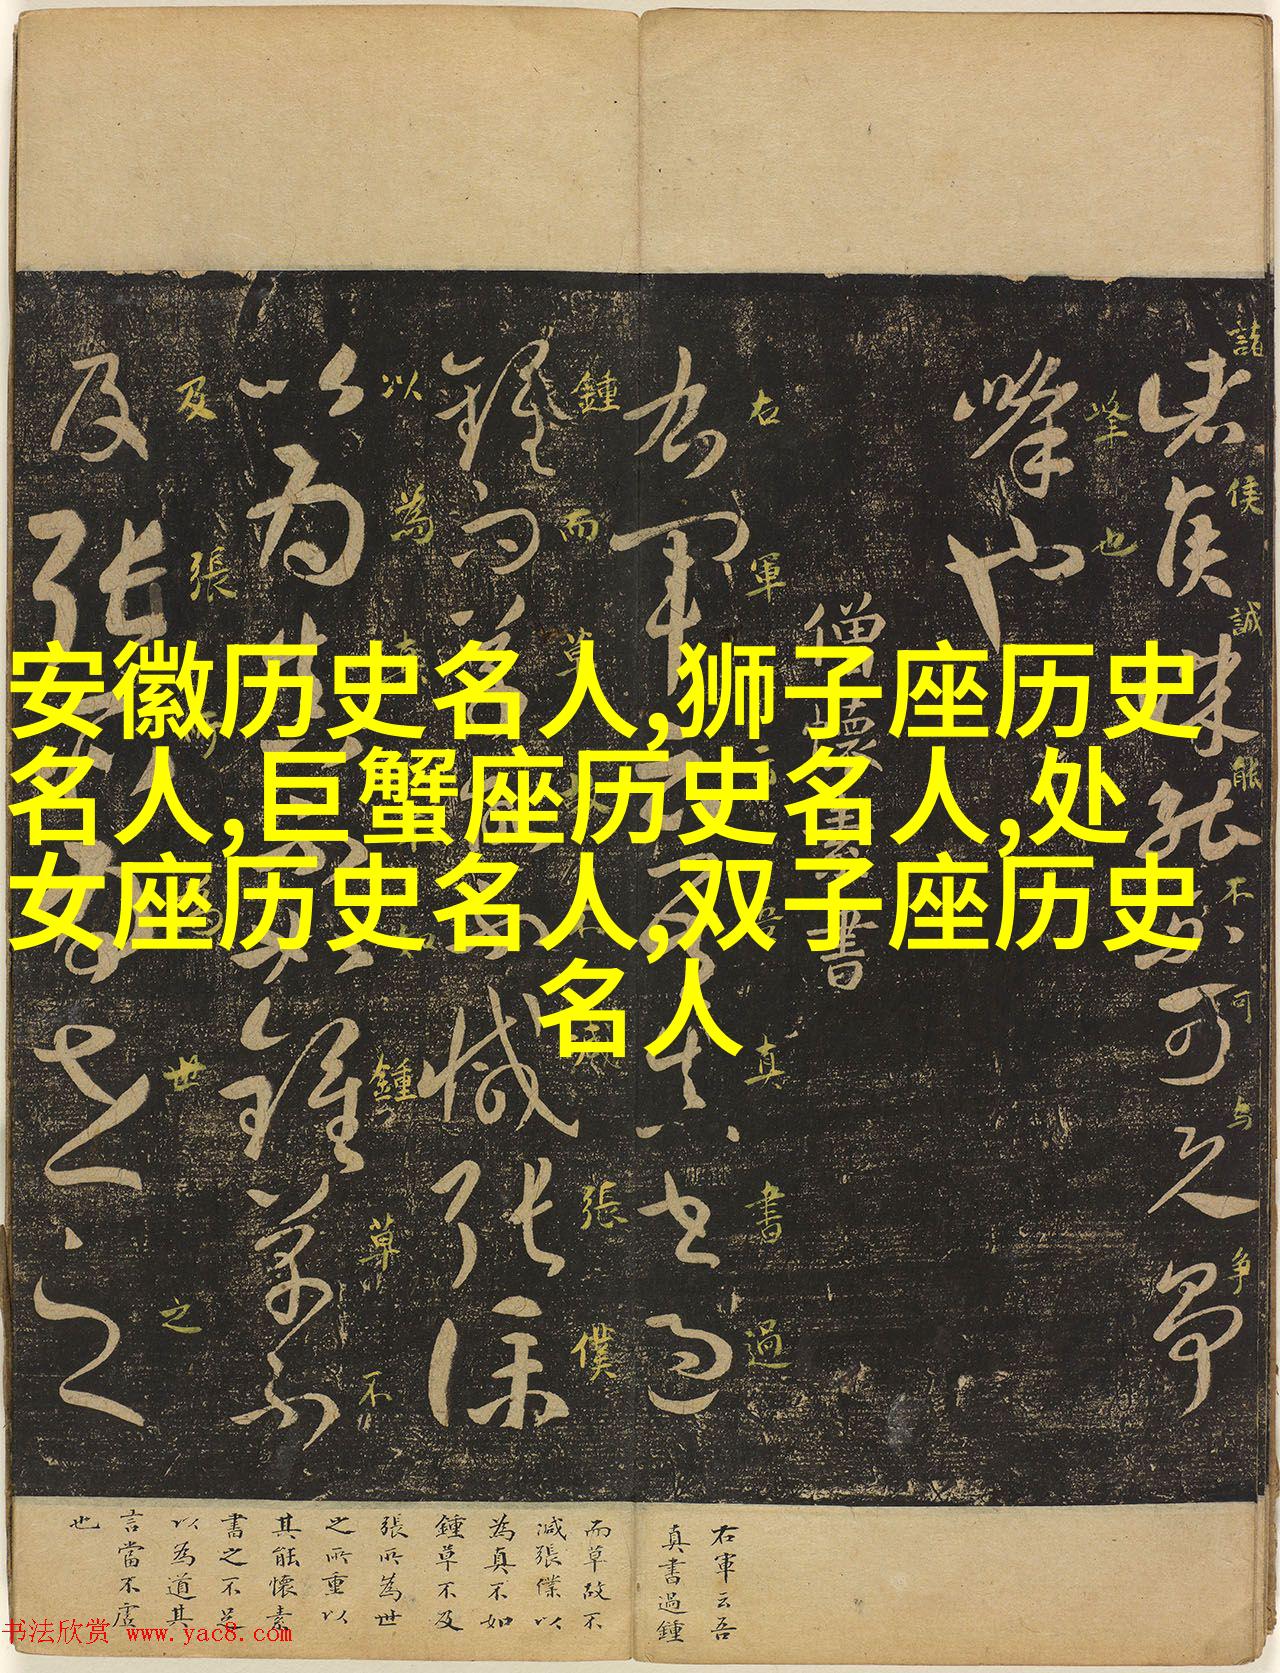 安徽历史名人,狮子座历史
名人,巨蟹座历史名人,处
女座历史名人,双子座历史
名人
諸侯誠能不可与争
峰也
僧懷素書
右軍云吾真書過
鍾而草故不減張僕
以為真不如鍾草不
及張所為世之
右軍云吾
真書過鍾
而草故不
減張僕以
為真不如
鍾草不及
張所為世
之所重以
其能懷素
書之不足
以為道其
言當不虛
也
书法欣赏 www.yac8.com